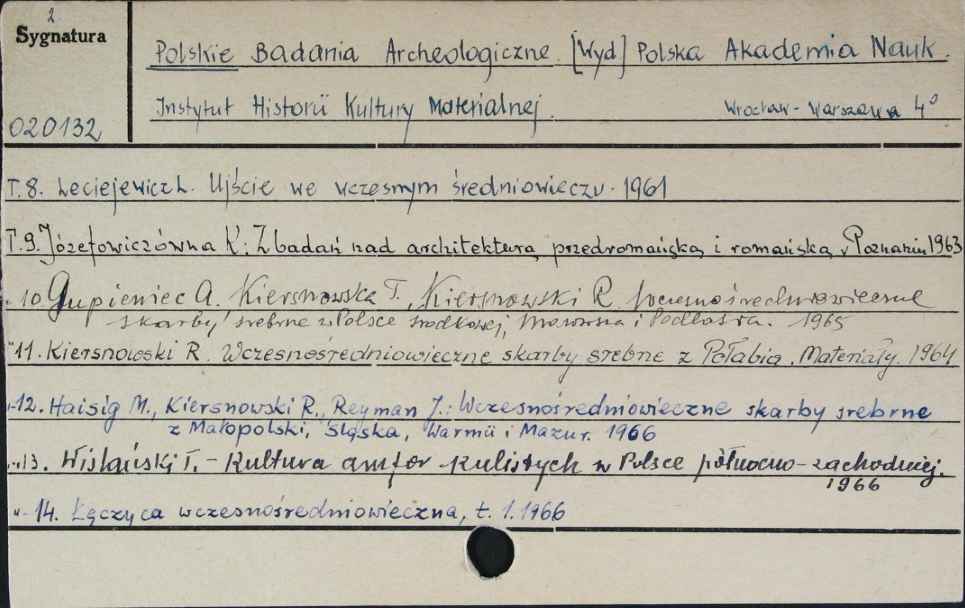 2
Sygnatura
Polskie Badania Archeologiczne. [Wyd] Polska Akademia Nauk.
Instytut Historii Kultury Materialnej. Wrocław - Warszawa 4°
020132
T. 8. Leciejewicz L. Ujście we wczesnym średniowieczu. 1961
T. 9. Józefowiczówna K: Z badań nad architekturą przedromańską i romańską w Poznaniu 1963
" 10. Gupieniec A. Kiersnowska T. Kiersnowski R. Wczesnośredniowieczne
skarby srebrne z Polski środkowej, Mazowsza i Podlasia. 1965
" 11. Kiersnowski R. Wczesnośredniowieczne skarby srebrne z Połabia. Materiały. 1964
" 12. Haisig M., Kiersnowski R., Reyman J.: Wczesnośredniowieczne skarby srebrne
z Małopolski, Śląska, Warmii i Mazur. 1966
" 13. Wiślański T. - Kultura amfor kulistych w Polsce północno-zachodniej.
1966
" 14. Łęczyca wczesnośredniowieczna, t. 1. 1966